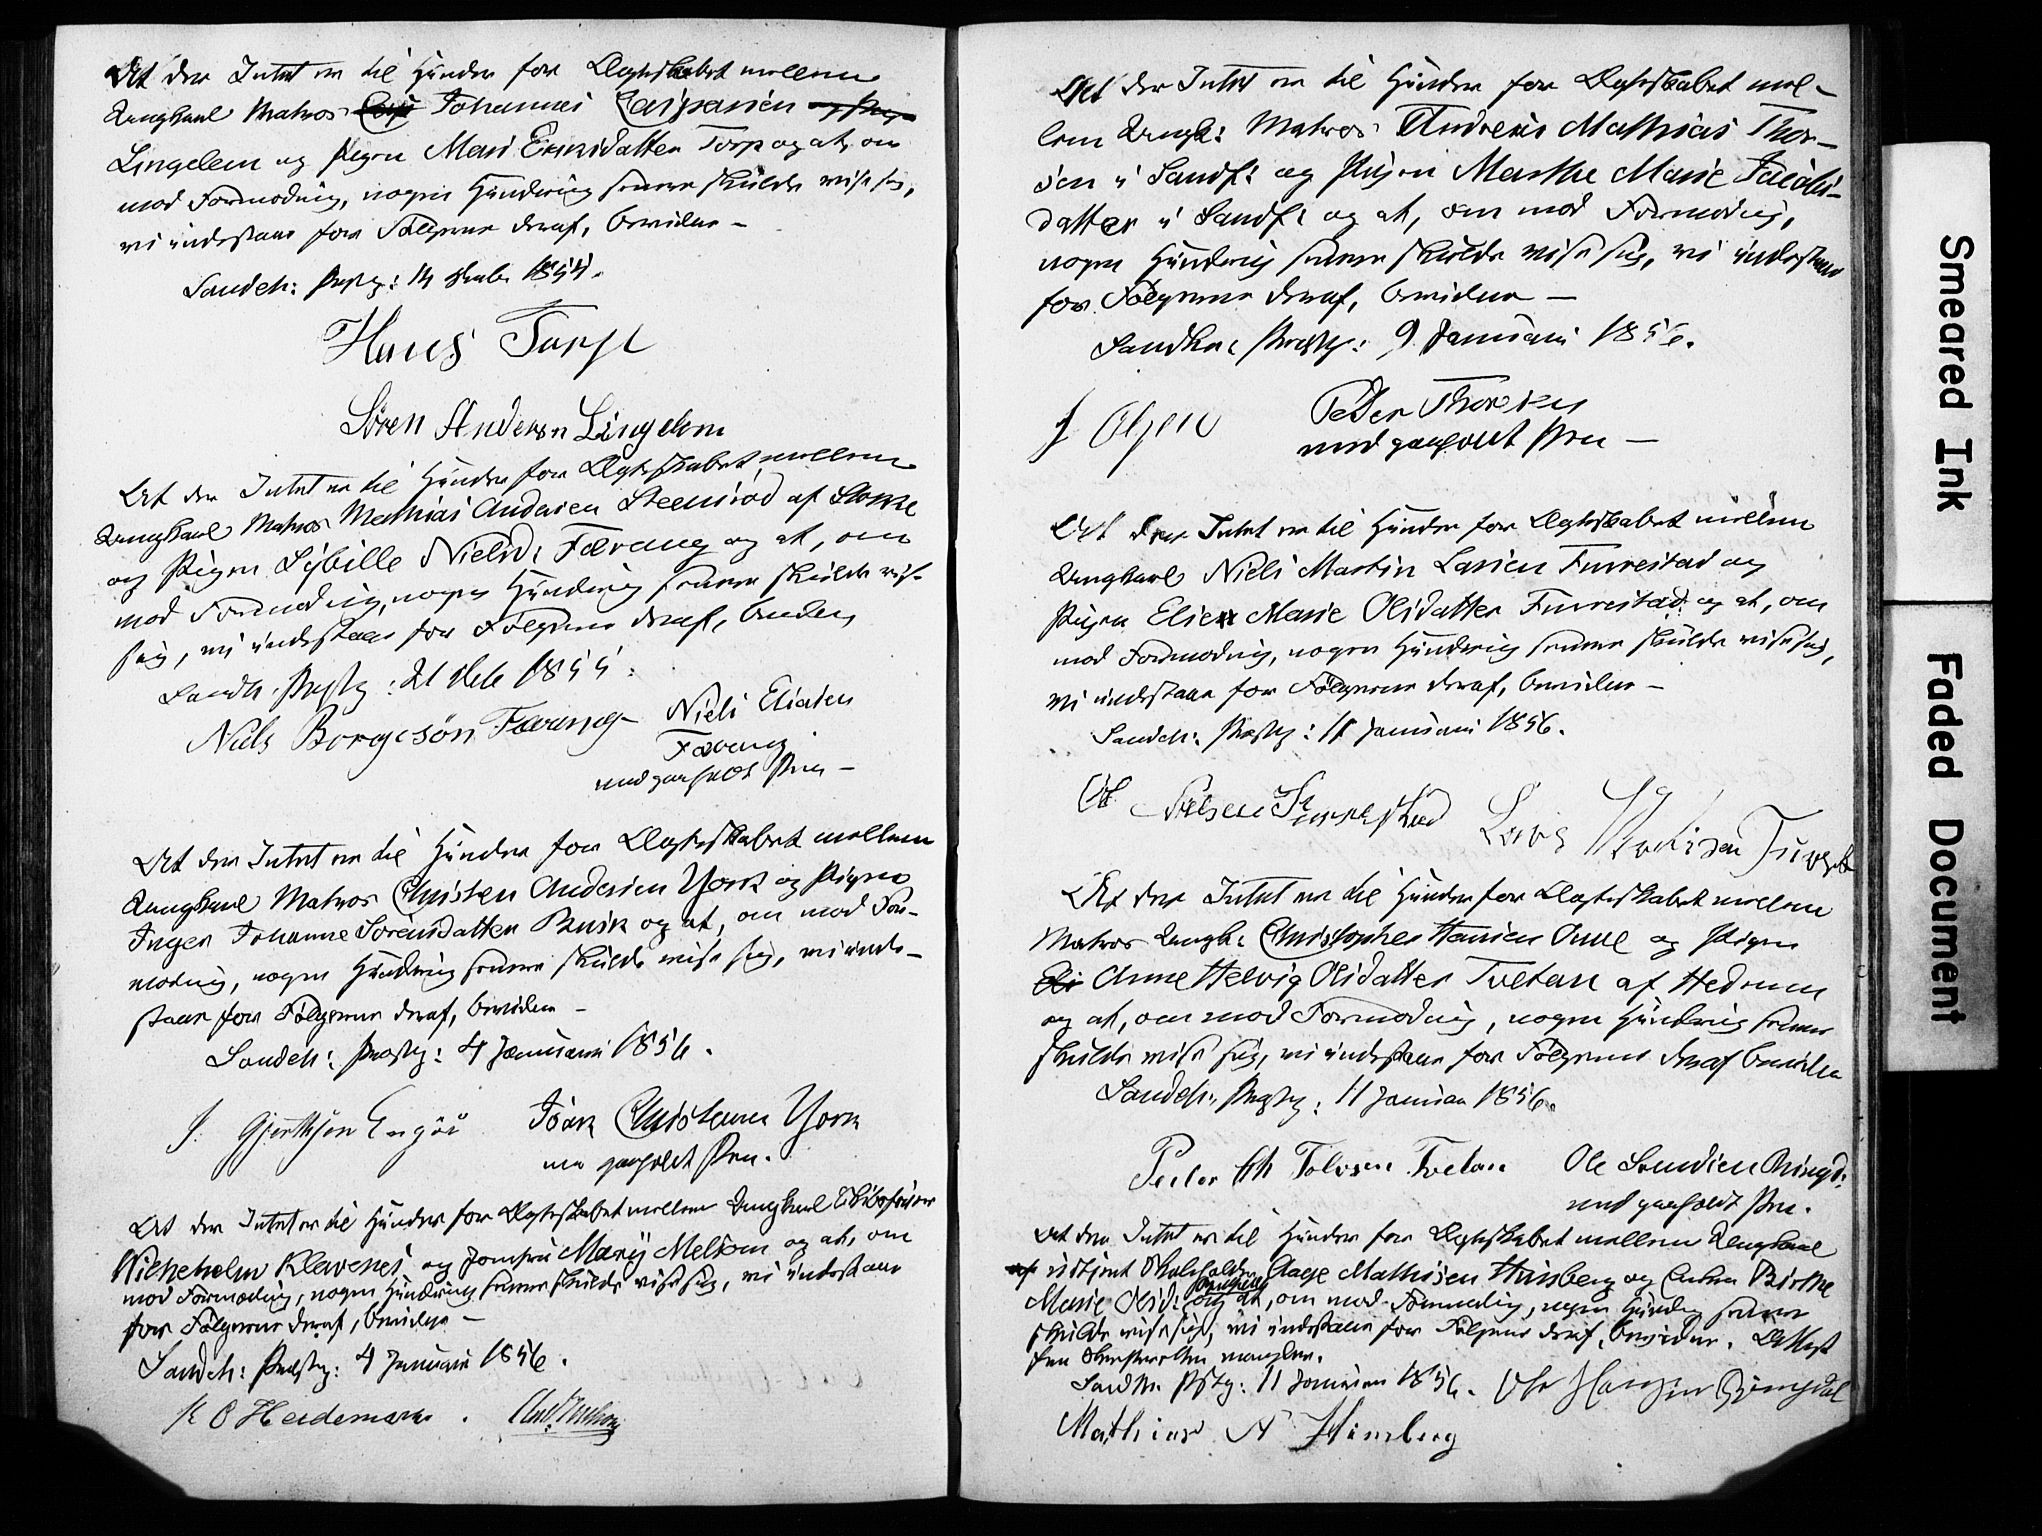 At der Intet er til Hinder for Ægteskabet mellem
Ungkarl Matros Johannes Caspersen
Lingelem og Pigen Mari Ericsdatter Torp og at, om
mod Formodning, nogen Hindring senere skulde vise sig,
vi indestaae for Følgerne deraf, bevidne –
Sandeh: Præstg: 14 1854.
Hans Torp
Sören Andersn Lingelem
At der Intet er til Hinder for Ægteskabet mellem
Ungkarl Matros Mathias Andersen Steensrød af Stokke
og Pigen Sybille Nielsd: Færvang og at, om
mod Formodning, nogen Hindring senere skulde vise
sig, vi indestaae for Følgerne deraf, bevidne
Sandh. Præstg: 21 1855.
Niels Borgesøn Færvang Niels Eliasen
Færvang
med paaholdt Pen –
At der Intet er til Hinder for Ægteskabet mellem
Ungkarl Matros Christen Andersen York og Pigen
Inger Johanne Sørensdatter Rusk og at, om mod For-
modning, nogen Hindring senere skulde vise sig, vi inde-
staae for Følgerne deraf, bevidne –
Sandeh: Præstg: 4 Januari 1856.
J. Gjertsen Engöe Isak Christensen York
med paaholdt Pen.
At der Intet er til Hinder for Ægteskabet mellem Ungkarl Skibsfører
Wilhelm Klavenes og Jomfru Mary Melsom og at, om
mod Formodning, nogen Hindring senere skulde vise sig, vi indestaae
for Følgerne deraf, bevidne –
Sandeh: Præstg: 4 Januari 1856.
Heidemark. And. Melsom
At der Intet er til Hinder for Ægteskabet mel-
lem Ungk: Matros Andreas Mathias Thor-
sen i Sandf: og Pigen Marthe Marie Jacobs-
datter i Sandf: og at, om mod Formodning,
nogen Hindring senere skulde vise sig, vi indestaae
for Følgerne deraf, bevidne –
Sandher Præstg: 9 Januari 1856.
J Olsen Peder Thorsen
med paaholdt Pen –
At der Intet er til Hinder for Ægteskabet mellem
Ungkarl Niels Martin Larsen Furrestad og
Pigen Elise Marie Olsdatter Furrestad og at, om
mod Formodning, nogen Hindring senere skulde vise sig,
vi indestaae for Følgerne deraf, bevidne –
Sandeh: Præstg: 11 Januari 1856.
Ole Nielsen Furrestad Lars
At der Intet er til Hinder for Ægteskabet mellem
Matros Ungk: Christopher Hansen og Pigen
Anne Helvig Olsdatter Tvetan af Hedrum
og at, om mod Formodning, nogen Hindring senere
skulde vise sig, vi indestaae for Følgerne deraf bevidne
Sandeh: Præstg: 11 Januar 1856.
Peder Tolvsen Tvetan Ole
med paaholdt Pen.
At der Intet er til Hinder for Ægteskabet mellem Ungkarl
udtjent Skoleholder Aage Mathisen Himberg og Enken Birthe
Marie Olsd: og at, om mod Formodning, nogen Hindring senere
skulde vise sig, vi indestaae for Følgerne deraf, bevidne. Attest
mangler.
Sandh. Pstg: 11 Januar 1856. Ole Hansen
Mathias A Himberg
Smeared Ink
Faded Document